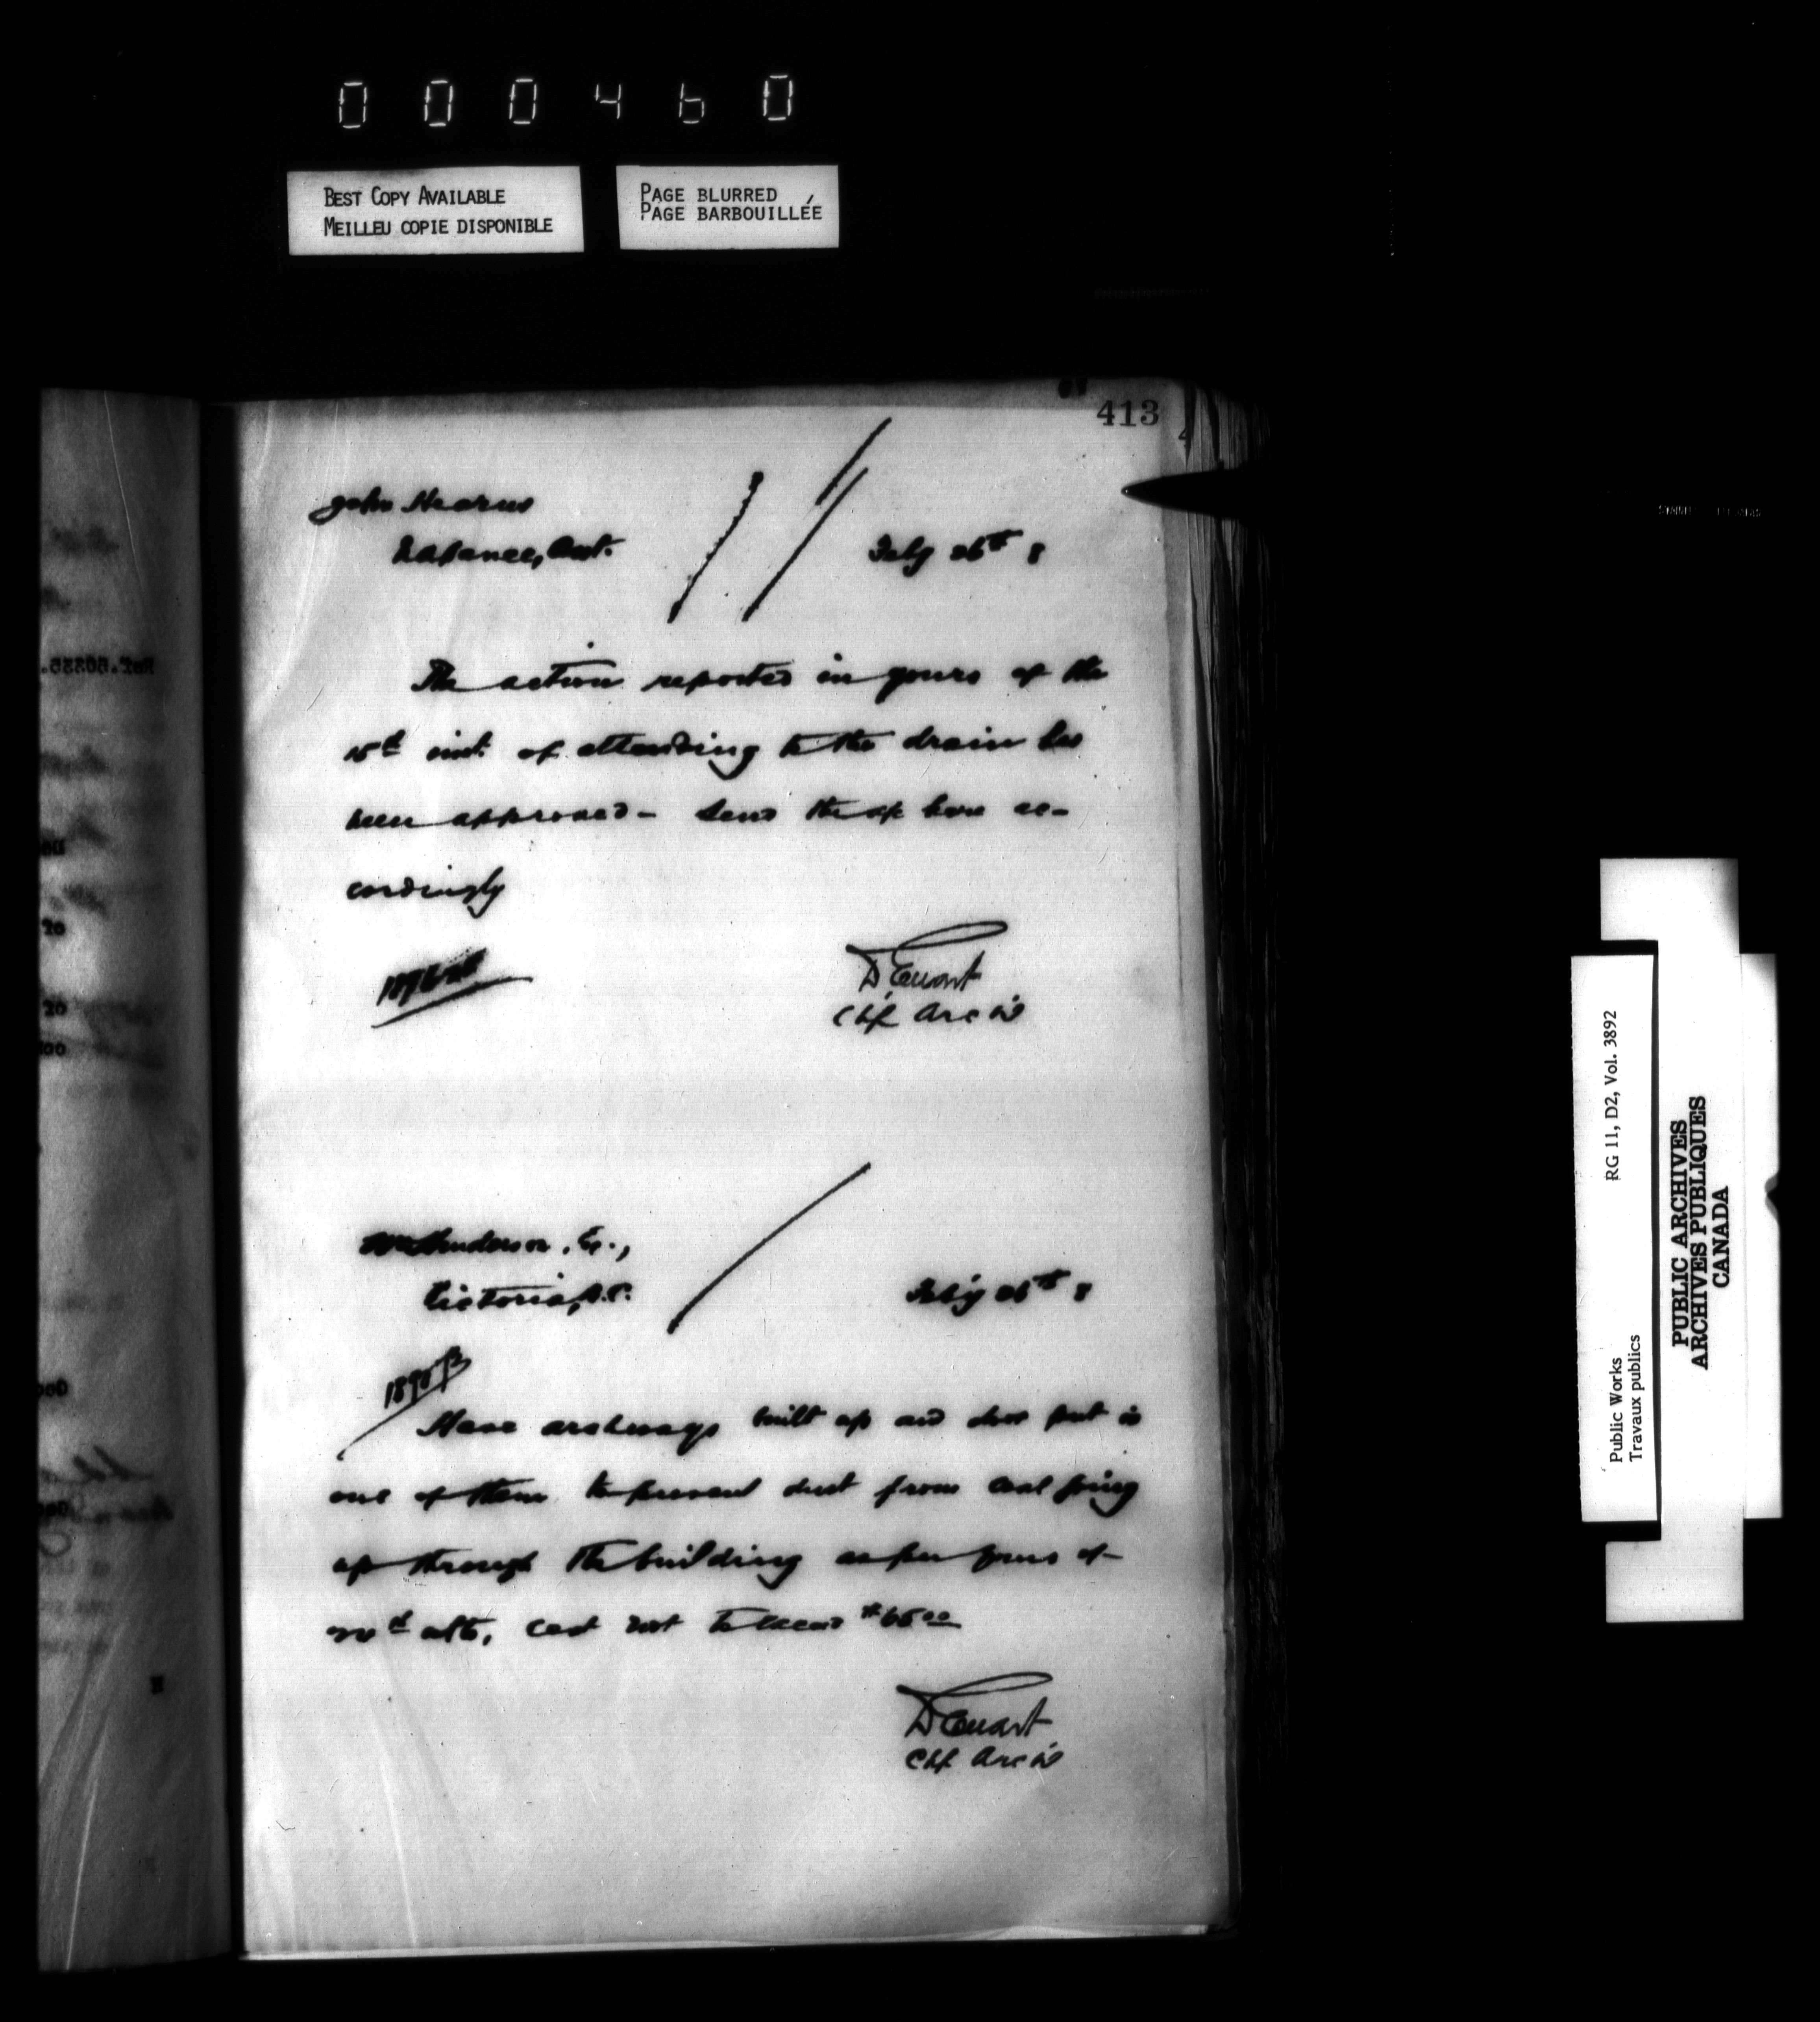 000460
BEST COPY AVAILABLE
MEILLEU COPIE DISPONIBLE
PAGE BLURRED
PAGE BARBOUILLÉE
413
John Hearns
Napanee, Ont.
Feby 26th 8
The action reported in yours of the
15th inst. of attending to the drain has
been approved - Send the a/c here ac-
cordingly
D Ewart
Chf Arct
Wm Henderson, Eq.,
Victoria, B.C.
Feb'y 26th 8
Have archways built up and door put in
one of them to prevent dust from coal going
up through the building as per yours of
ulto, cost not to exceed $65.00
D Ewart
Chf Arct
Public Works
Travaux publics
RG 11, D2, Vol. 3892
PUBLIC ARCHIVES
ARCHIVES PUBLIQUES
CANADA